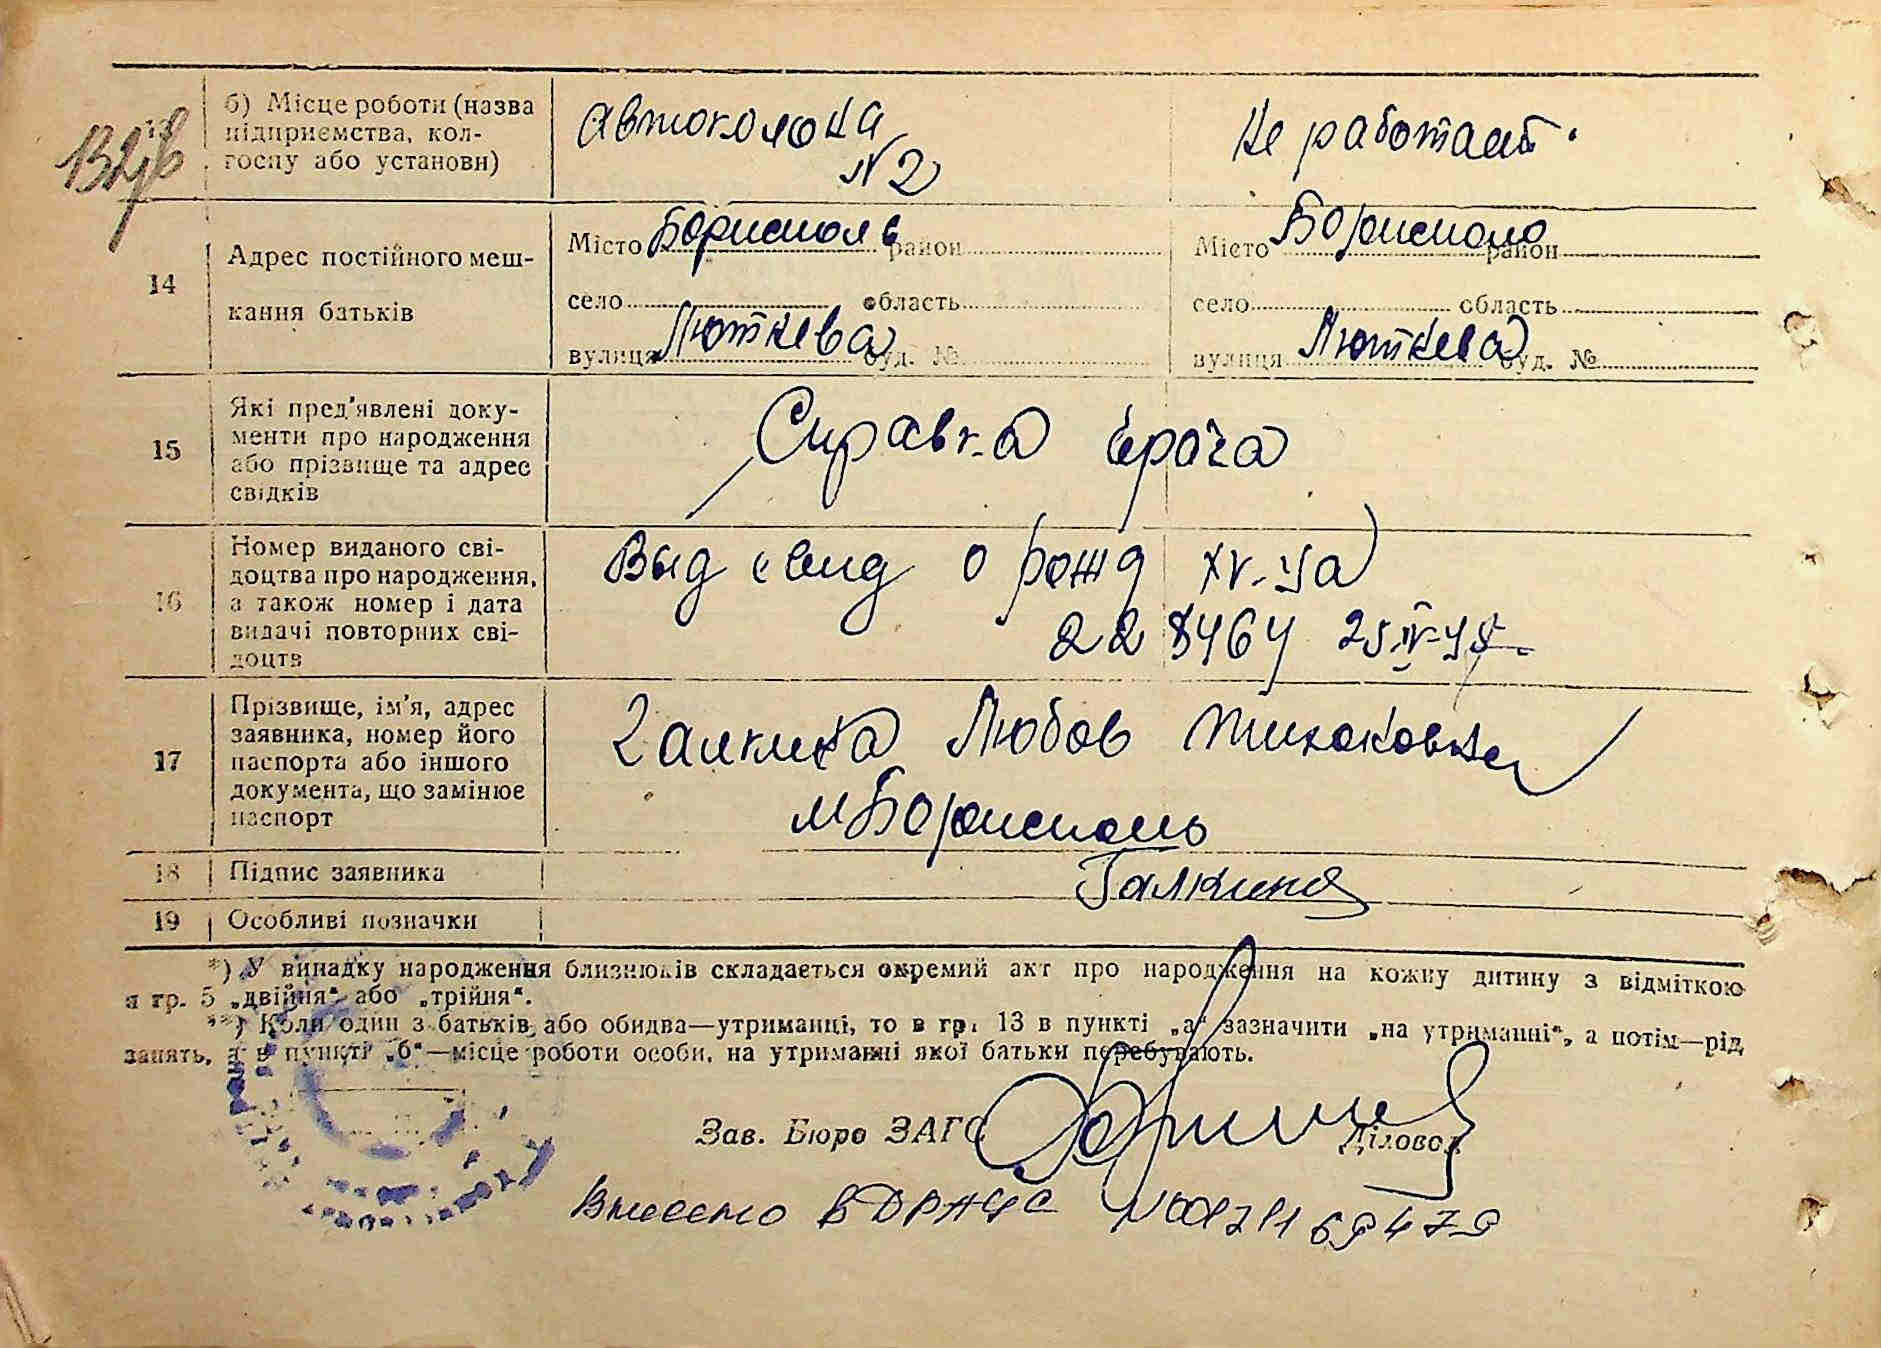 б) Місце роботи (назва
підприємства, кол-
госпу або установи)
Автоколона
№ 2
Не работает.
14
Адрес постійного меш-
кання батьків
Місто Бориспол район
село область
вулиця Люткева буд. №
Місто Борисполь район
село область
вулиця Люткева буд. №
15
Які пред'явлені доку-
менти про народження
або прізвище та адрес
свідків
Справка врача
16
Номер виданого сві-
доцтва про народження,
а також номер і дата
видачі повторних сві-
доцтв
Выд свид о рожд
228464 25-IV-45
17
Прізвище, ім'я, адрес
заявника, номер його
паспорта або іншого
документа, що замінює
паспорт
Галкина Любов Тихоновна
м Борисполь
18 Підпис заявника
Галкина
19 Особливі позначки
*) У випадку народження близнюків складається окремий акт про народження на кожну дитину з відміткою
в гр. 5 „двійня" або „трійня".
**) Коли один з батьків, або обидва—утриманці, то в гр. 13 в пункті „а" зазначити „на утриманні", а потім—рід
занять, а в пункті „б"—місце роботи особи, на утриманні якої батьки перебувають.
Зав. Бюро ЗАГС Діловод
Внесено в ДРАЦС №